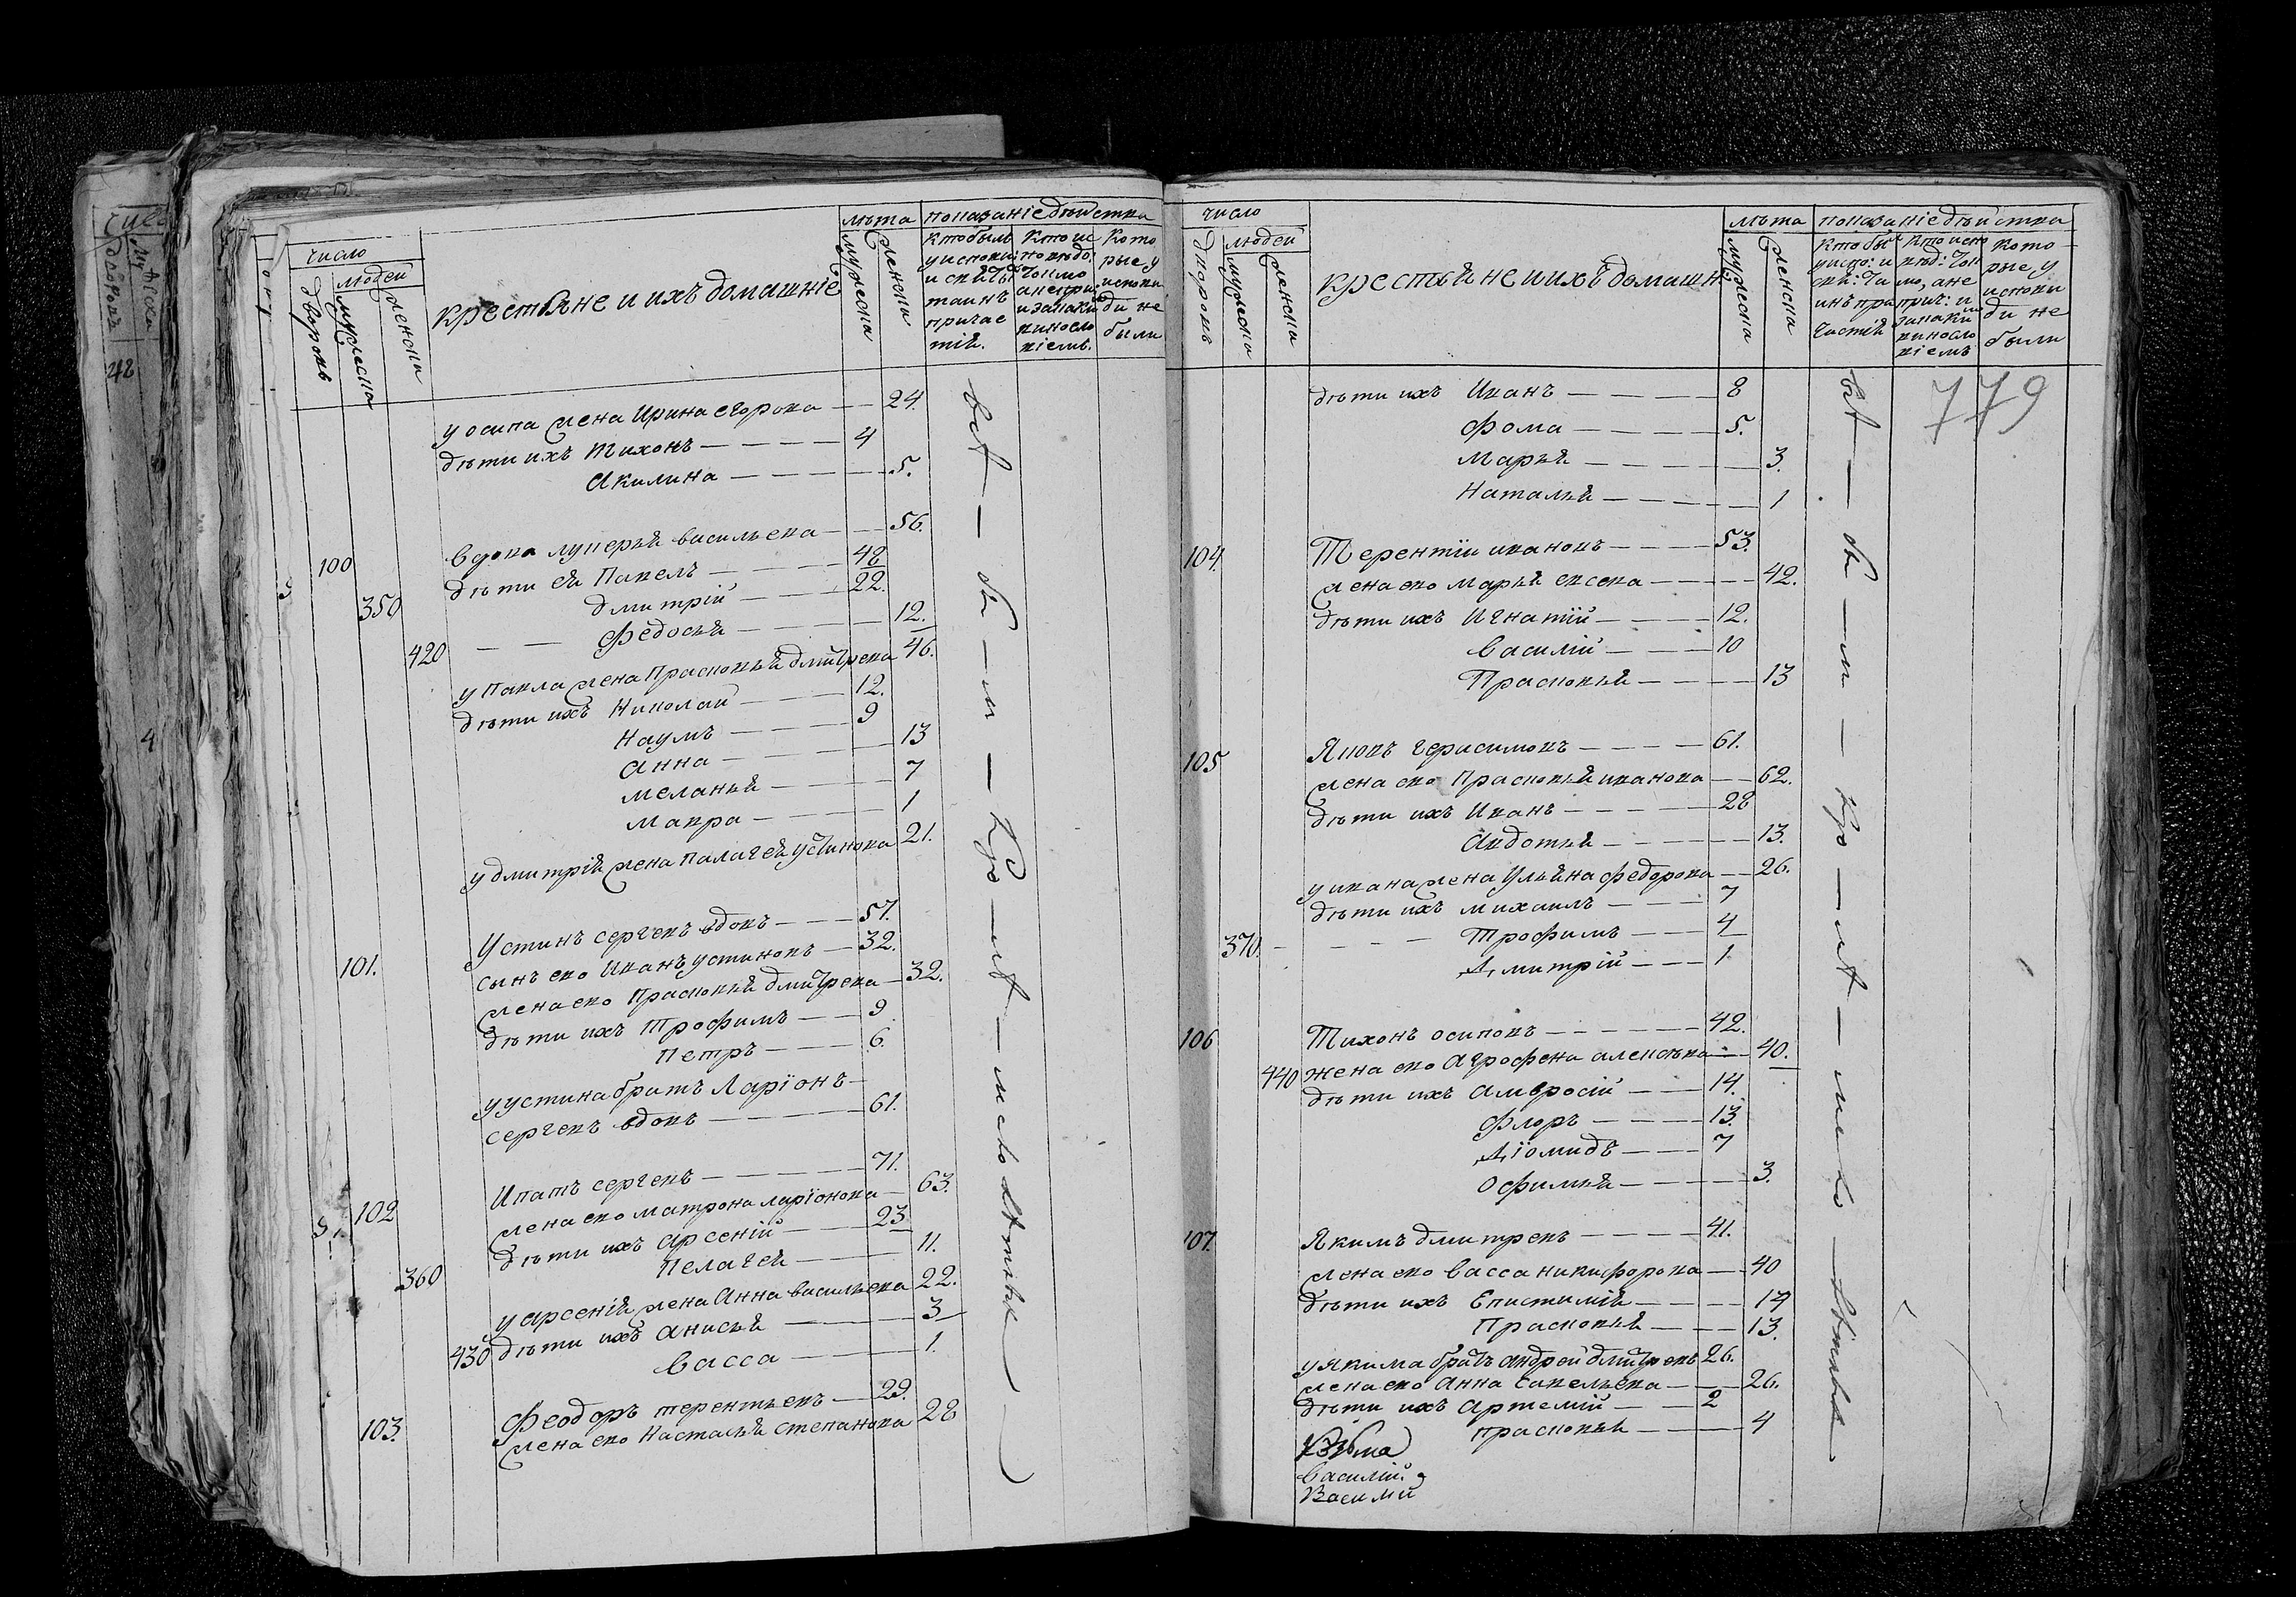 число
дворовъ
людей
мужеска
женска
крестьяне и ихъ домашніе
лѣта
мужеска
женска
показаніе дѣйства
кто былъ
у исповѣ:
и св͠тыхъ
таинъ
причас
тія.
кто ис
повѣдо:
толмо
а не при:
и за каки
ви носло
віемъ.
кото
рые у
исповѣ
ди не
были
у осипа жена Ирина егорова — 24.
дѣти ихъ Тихонъ — 4
Акилина — 5.
100 вдова лукерья васильева — 56.
350 дѣти ея Павелъ — 48
дмитрій — 22.
420 Федосья — 12.
у Павла жена Прасковья дмитрева 46.
дѣти ихъ Николай — 12.
Наумъ — 9
Анна — 13
меланья — 7
мавра — 1
у дмитрія жена палагея устинова 21.
101. Устинъ сергевъ вдовъ — 57.
сынъ ево Иванъ устиновъ — 32.
жена ево Прасковья дмитрева — 32.
дѣти ихъ Трофимъ — 9
Петръ — 6.
у устина братъ Ларіонъ —
сергевъ вдовъ — 61.
102 Ипатъ сергевъ — 71.
жена ево матрона ларіонова — 63.
360 дѣти ихъ Арсеній — 23
Пелагея — 11.
у арсенія жена Анна васильева 22.
430 дѣти ихъ Анисья — 3
васса — 1.
103. Феодоръ терентьевъ — 29.
жена ево Настасья степанова 28
всѣ — бы — ли —
число
дворовъ
людей
мужеска
женска
крестьяне и ихъ домашн:
лѣта
мужеска
женска
показаніе дѣйства
кто бы
у испо: и
св: та
инъ при
частія
кто испо
вѣд: тол
мо, а не
прич: и
за каки
ви носло
віемъ
кото
рые у
исповѣ
ди не
были
779
дѣти ихъ Иванъ — 8
Фома — 5.
Марья — 3.
Наталья — 1
104. Терентіи ивановъ — 53.
жена ево марья евсева — 42.
дѣти ихъ Игнатій — 12.
василій — 10
Прасковья — 13
105 Яковъ герасимовъ — 61.
жена ево Прасковья иванова — 62.
дѣти ихъ Иванъ — 28
Авдотья — 13.
у ивана жена Ульяна федорова — 26.
дѣти ихъ михаилъ — 7
370. Трофимъ — 4
Дмитрій — 1
106 Тихонъ осиповъ — 42.
440 жена ево Агрофена алексѣва — 40.
дѣти ихъ Амвросій — 14.
Флоръ — 13.
Діомидъ — 7
офимья — 3.
107. Якимъ дмитревъ — 41.
жена ево васса никифорова — 40
дѣти ихъ Епистимія — 14
Прасковья — 13.
у якима братъ андрей дмитревъ 26.
жена ево Анна савельева — 26.
дѣти ихъ Артемій — 2
прасковья — 4
Козьма
василій
Василій
всѣ — бы — ли —